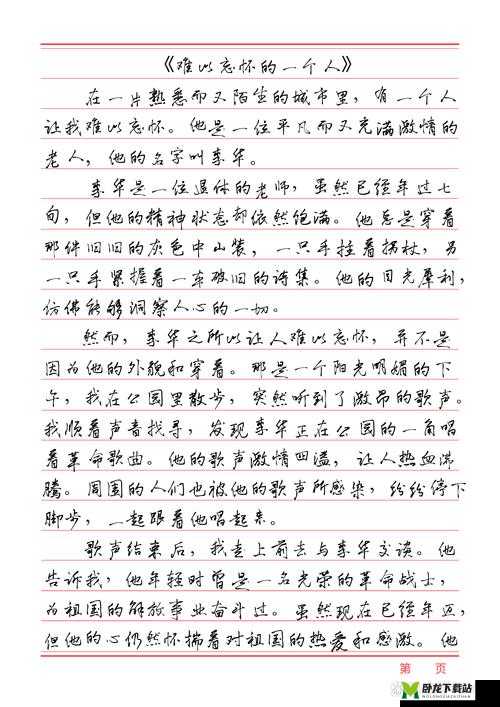 《难以忘怀的一个人》
在一片熟悉而又陌生的城市里，有一个人
让我难以忘怀。他是一位平凡而又充满激情的
老人，他的名字叫李华。
李华是一位退休的老师，虽然已经年过七
旬，但他的精神状态却依然饱满。他总是穿着
那件旧旧的灰色中山装，一只手拄着拐杖，另
一只手紧握着一本破旧的诗集。他的目光犀利，
仿佛能够洞察人心的一切。
然而，李华之所以让人难以忘怀，并不是
因为他的外貌和穿着。那是一个阳光明媚的下
午，我在公园里散步，突然听到了激昂的歌声。
我顺着声音找寻，发现李华正在公园的一角唱
着革命歌曲。他的歌声激情四溢，让人热血沸
腾。周围的人们也被他的歌声所感染，纷纷停下
脚步，一起跟着他唱起来。
歌声结束后，我走上前去与李华交谈。他
告诉我，他年轻时曾是一名光荣的革命战士，
为祖国的解放事业奋斗过。虽然现在已经年迈，
但他的心仍然怀揣着对祖国的热爱和感激。他
第 页
卧龙下载站
WOLONGXIAZAIZHAN